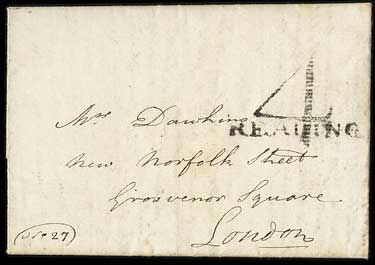 4
Mrs Dawkins
READING
New Norfolk Street
Grosvenor Square
London
No 27